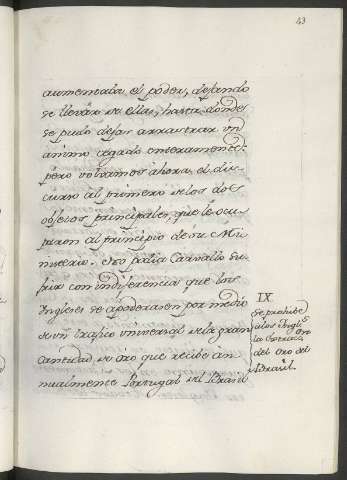 43
aumentaba el poder, dejando
se llevár de ellas, hasta dónde
se pudo dejar arrastrar un
animo cegado enteramente:
péro volvamos ahora el dis-
curso al primero de los dos
objetos principales, que le ocu-
paron al principio de su Mi-
nisterio. No podia Carvallo su-
frir con indiferencia que los
Ingleses se apoderasen por medio
de un trafico universal de la gran
cantidad de oro que recibe an-
nualmente Portugal del Brasil
IX.
Se prohibe
a los Ingls
la
del Oro del
Brasil.